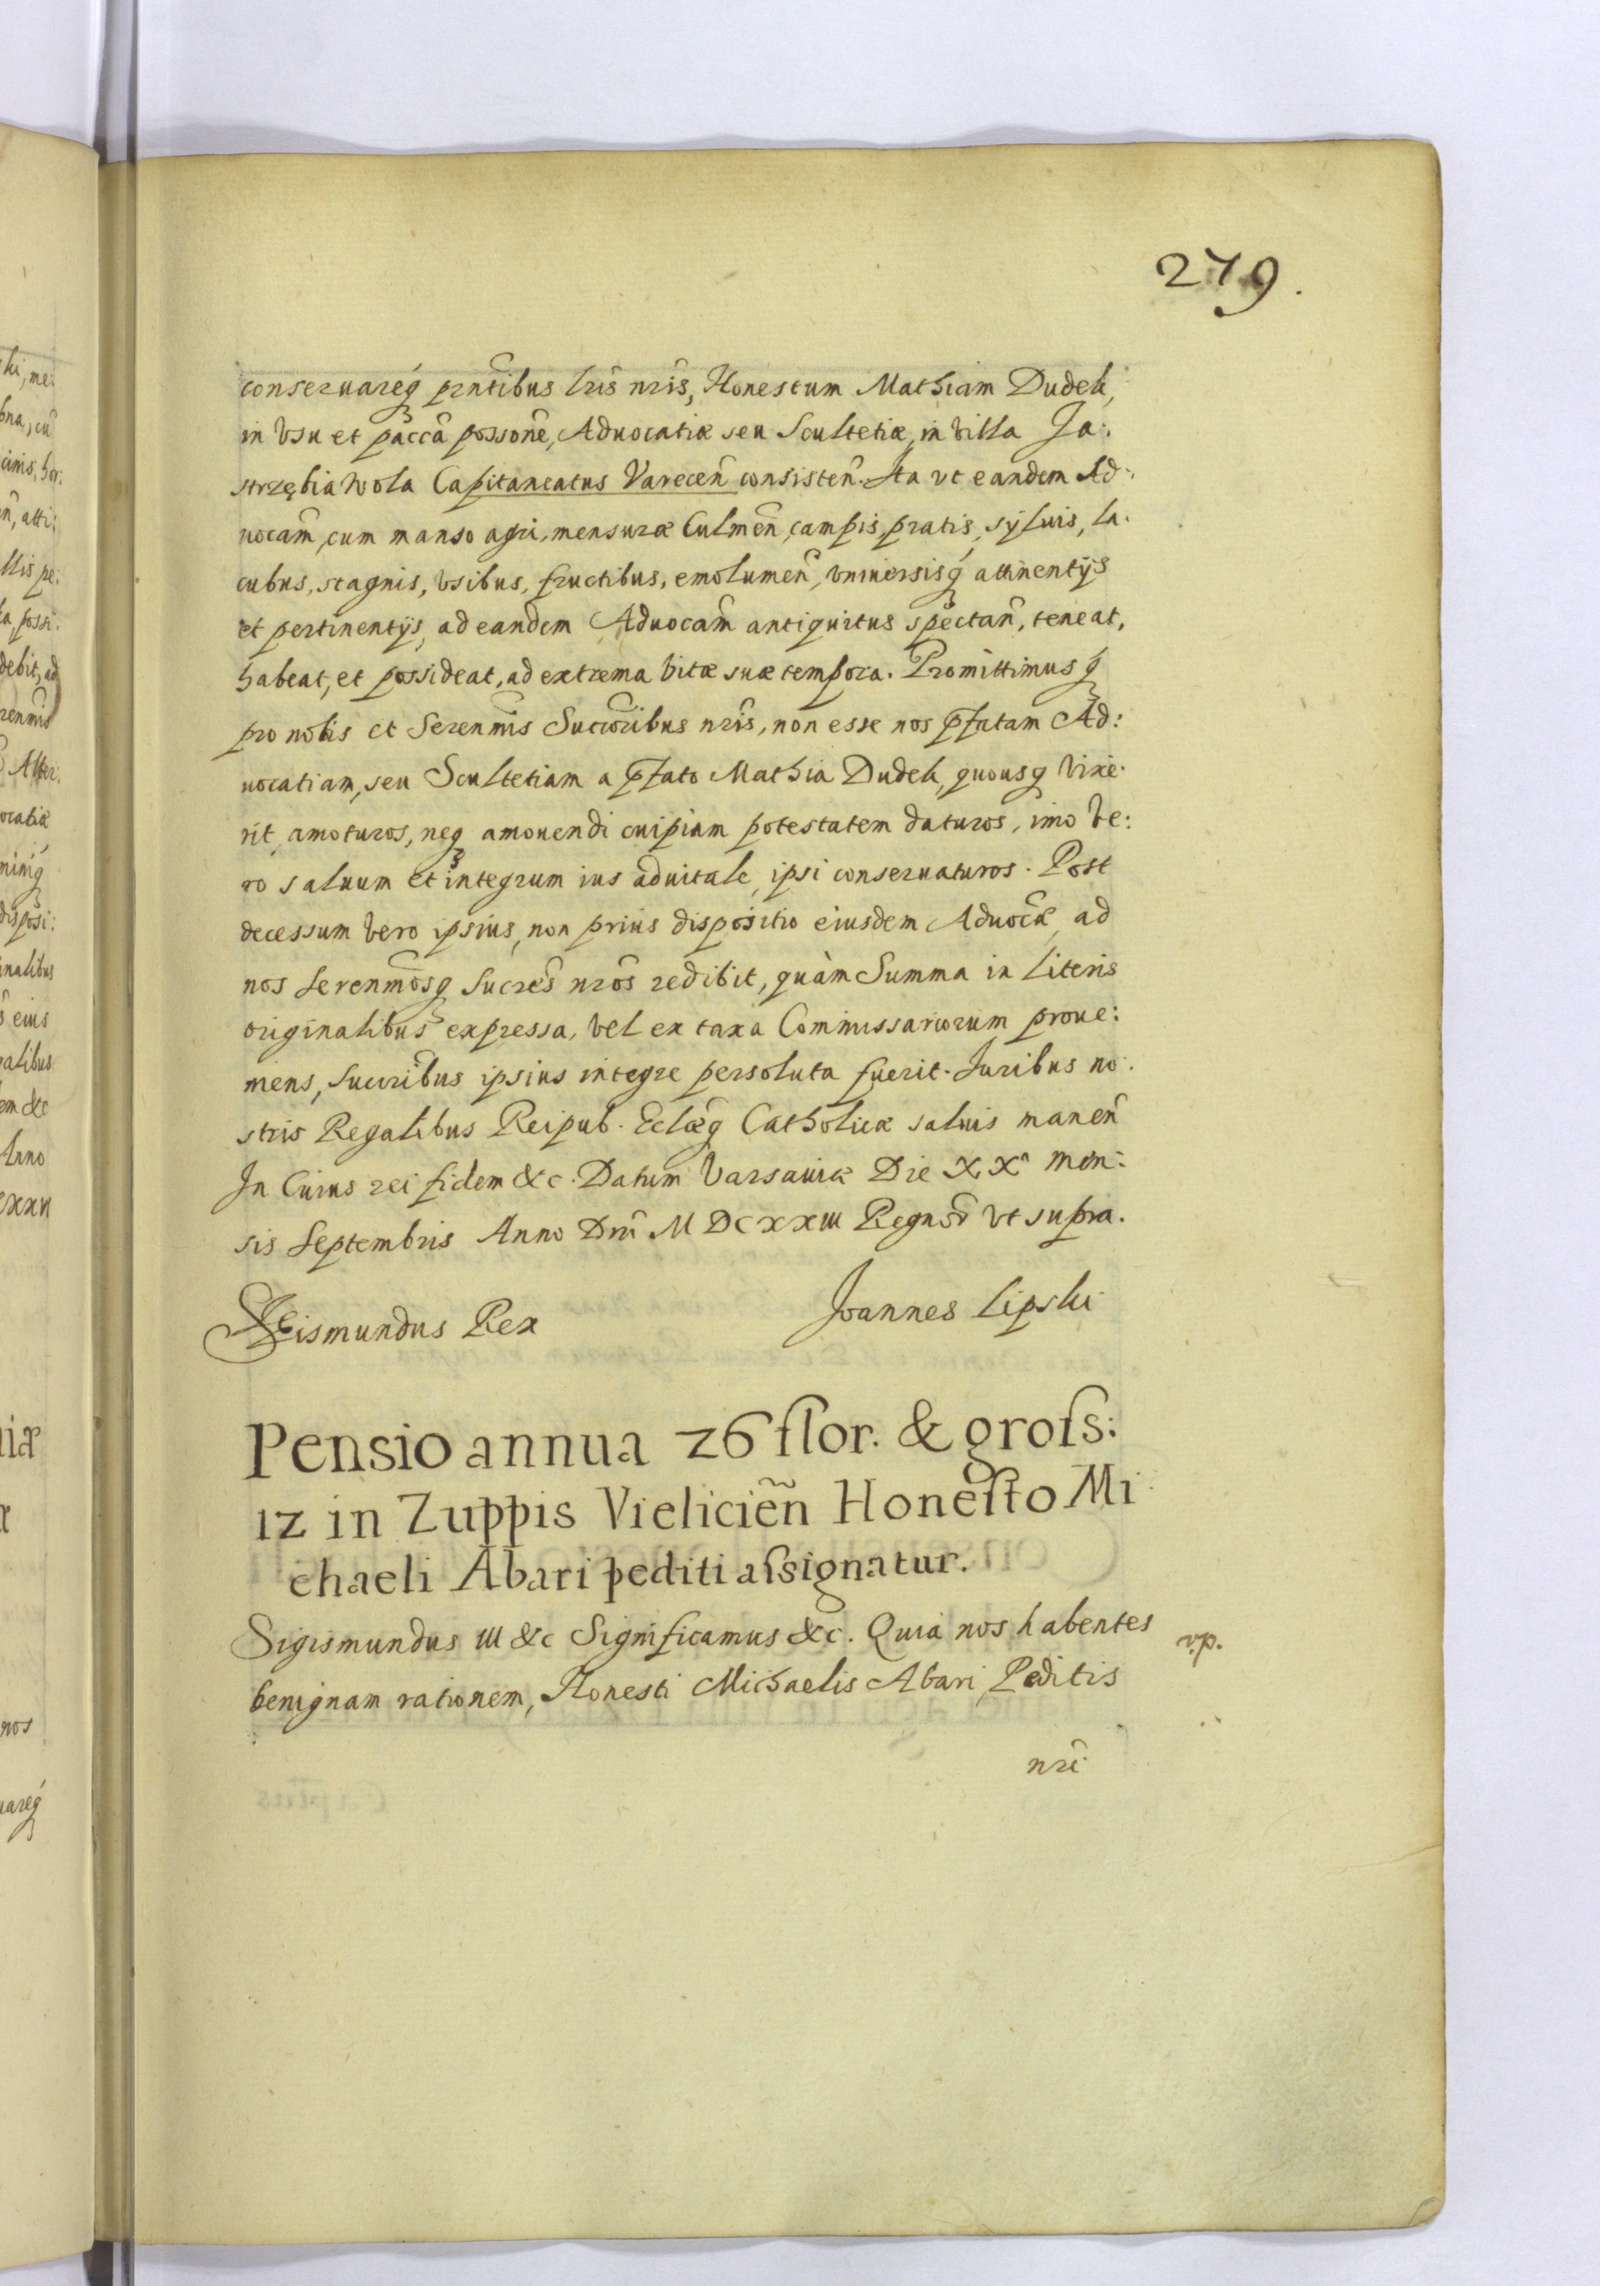 279.
conseruareq́ prñtibus lris nris, Honestum Mathiam Dudek,
in Vsu et paccã possone, Aduocatiæ seu Scultetiæ, in villa Ja:
strzębia Wola Capitaneatus Vareceñ consisteñ. Ita vt eandem Ad:
uocam̃, cum manso agri, mensuræ Culmeñ, campis, pratis, syluis, la.
cubus, stagnis, vsibus, fructibus, emolumeñ, vniuersisq́ attinentijs
et pertinentijs, ad eandem Aduocam̃ antiquitus spectañ, teneat,
habeat, et possideat, ad extrema vitæ suæ tempora. Promittimusq́
pro nobis et Serenmis Succoribus nris, non esse nos pfatam Ad:
uocatiam, seu Scultetiam a pfato Mathia Dudek, quousq vixe:
rit, amoturos, neq amouendi cuipiam potestatem daturos, imo ve:
ro saluum et integrum ius aduitale, ipsi conseruaturos. Post
decessum vero ipsius, non prius dispositio eiusdem Aduocæ, ad
nos serenmosq Sucres nros redibit, quàm Summa in literis
originalibus expressa, vel ex taxa Commissariorum proue:
niens, succribus ipsius integre persoluta fuerit. Juribus no:
stris Regalibus Reipub. Eclæq Catholicæ saluis maneñ
In Cuius rei fidem &c. Datum Varsauiæ Die XXa men:
sis Septembris Anno Dni MDCXXIII Regnor̃ vt supra.
Sigismundus Rex
Joannes Lipski
Pensio annua 26 flor. & groſs:
12 in Zuppis Vielicieñ Honeſto Mi
chaeli Abari pediti aſsignatur.
Sigismundus III &c Significamus &c. Quia nos habentes
v.p.
benignam rationem, Honesti Michaelis Abari Peditis
nri